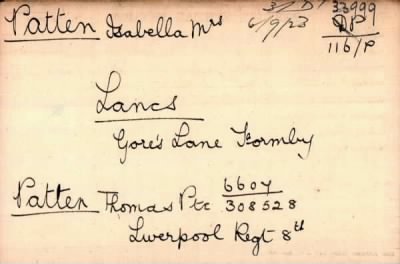 Patten Isabella Mrs
33999
6/9/23
DP
116/P
Lancs
Gore's Lane Formby
Patten Thomas Pte 6607
308528
Liverpool Regt 8th